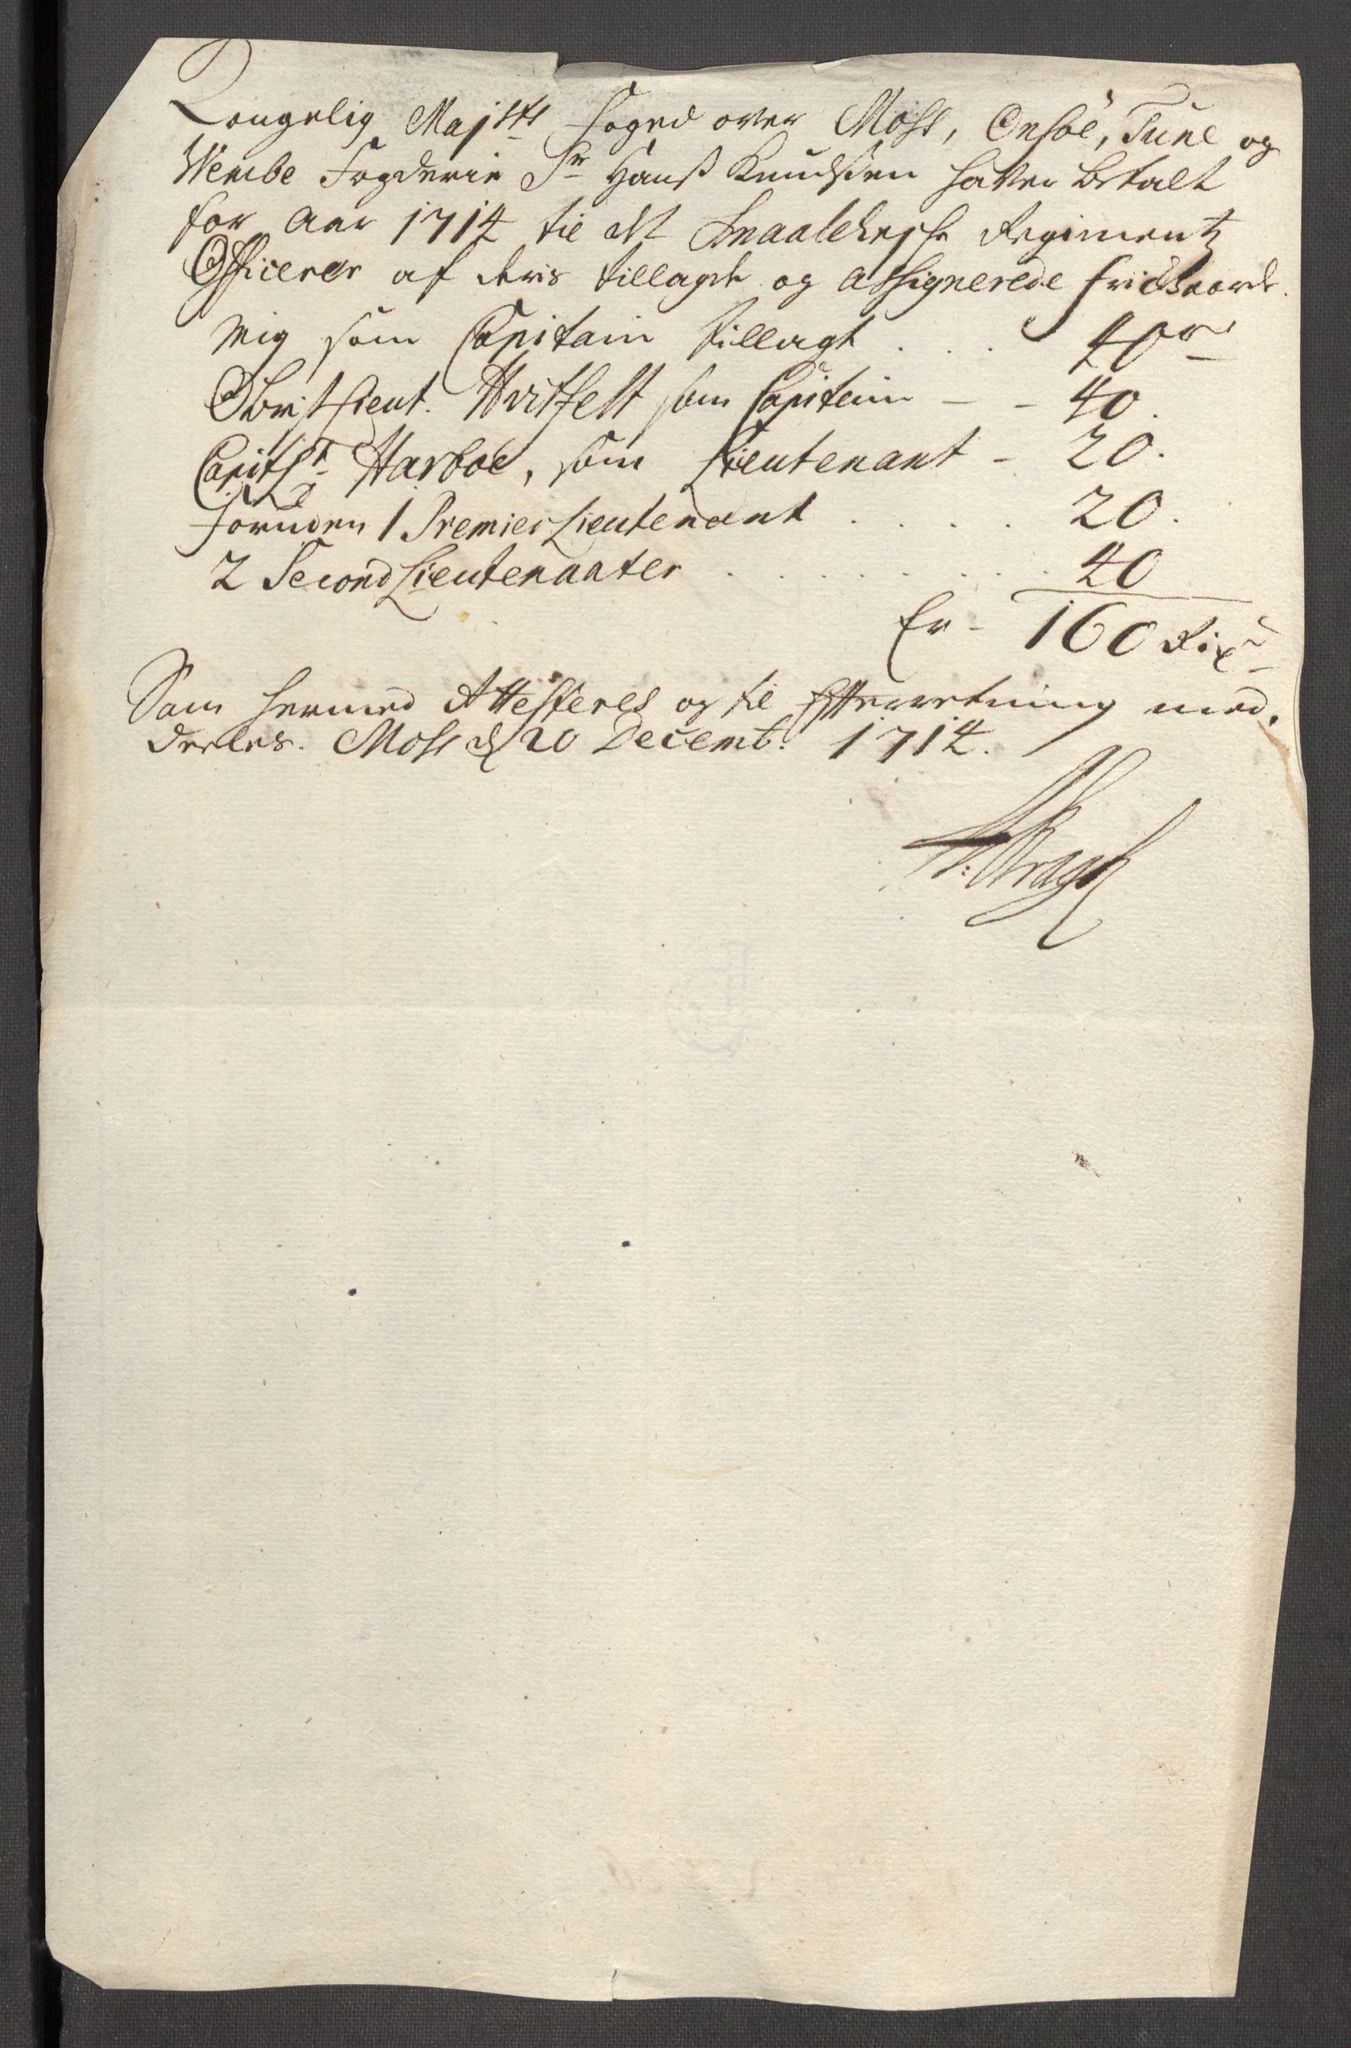 Kongelig Majsts Foged over Moss, Onsöe, Tune og
Wembe Fogderie Sr Hanß Knudsøn haver betalt
for Aar 1714 til det Smaalehnske Regimentz
Officerer af deris tillagde og assignerede frie
Mig som Capitain tillagt . . . 40
Obristlieut. Hvitfelt som Capitain - - 40.
Harboe, som Lieutenant - 20.
Foruden 1 PremierLieutenant . . . . 20.
2 SecondLieutenanter . . . . . . . . 40
Er - 160 Rixd
Som hermed Attesteres og til Efterretning med-
deeles. Moss d 20 Decembr: 1714.